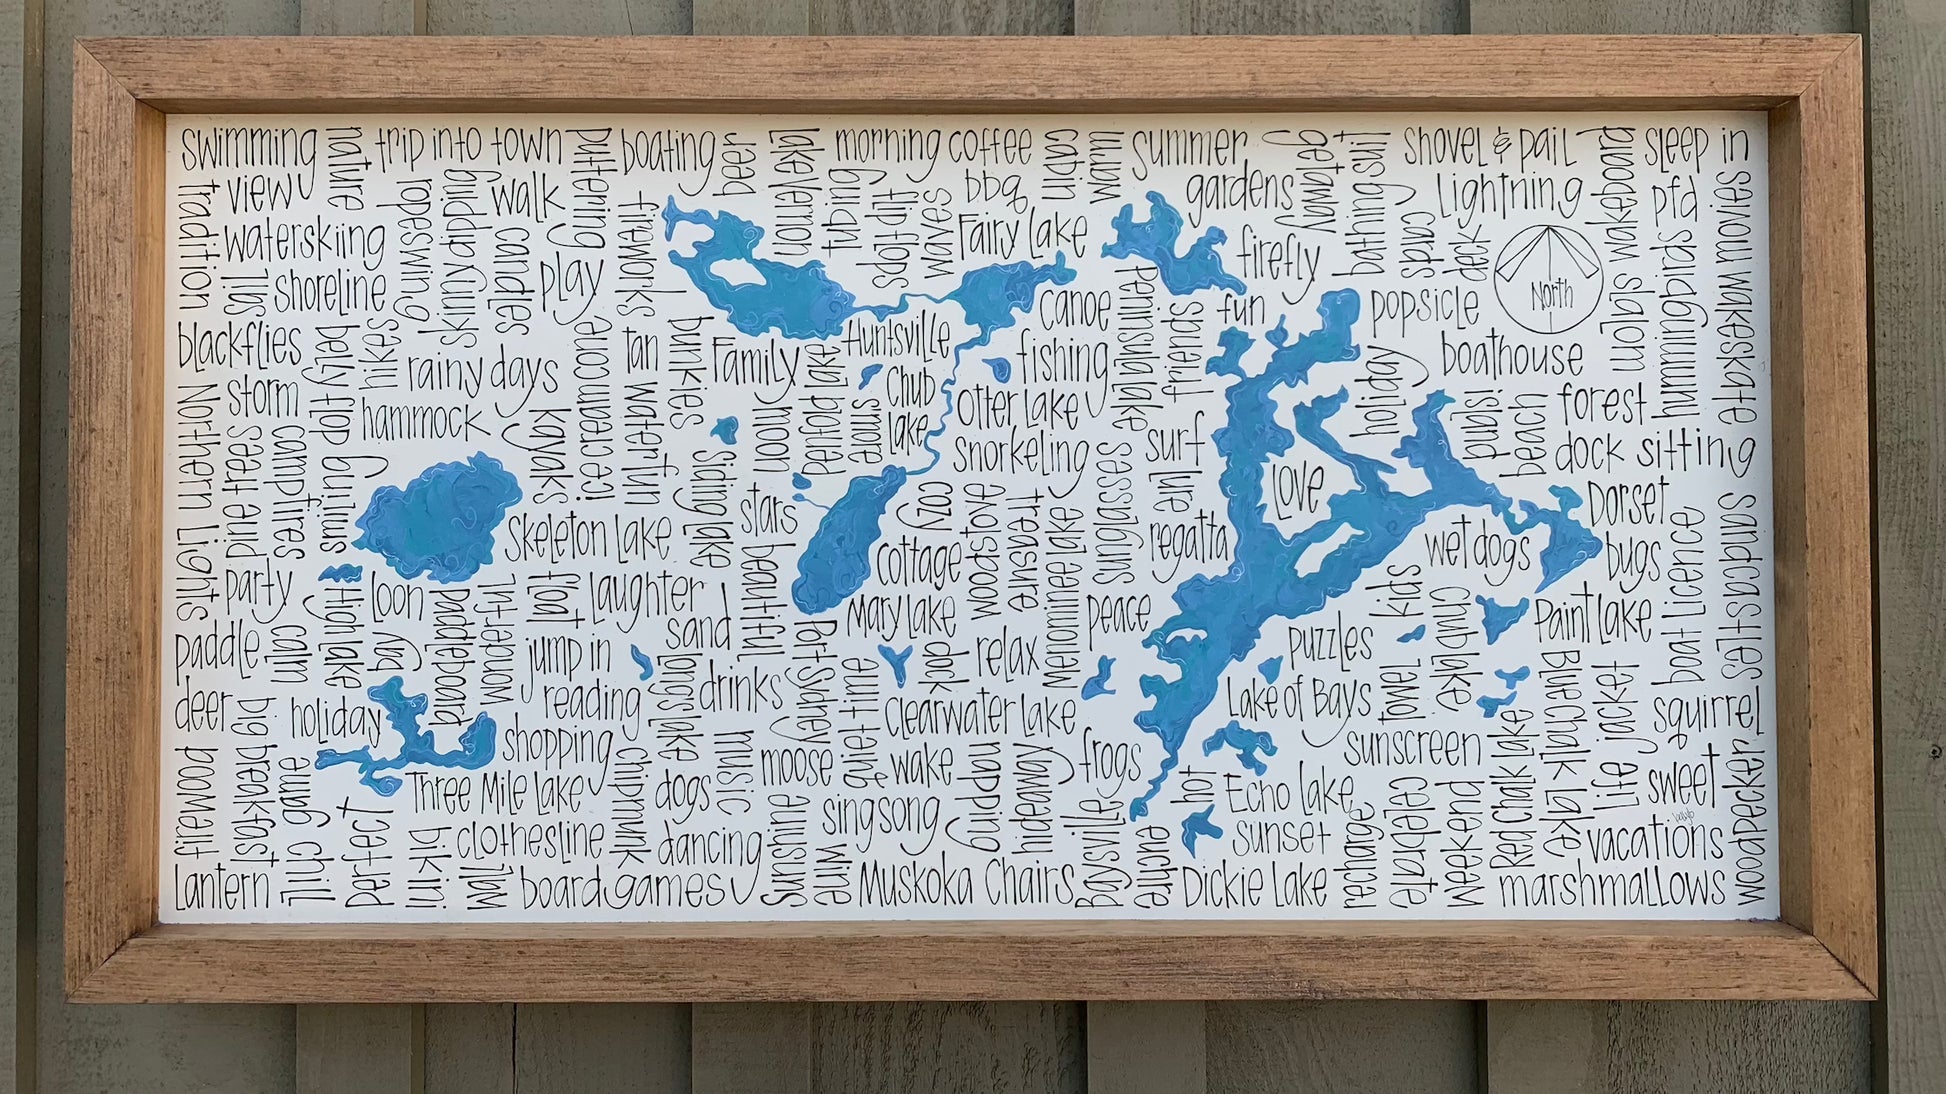 swimming
nature
trip into town
puttering
boating
beer
lake vernon
morning coffee
captain
warm
summer
getaway
bathing suit
shovel & pail
wakeboard
sleep in
tradition
view
ropeswing
skinny dipping
walk
candles
fireworks
tubing
flip flops
waves
bbq
gardens
cards
deck
lightning
pfd
seivom wakeskate
waterskiing
Fairy Lake
firefly
slalom
hummingbirds
sail
shoreline
play
canoe
peninsula lake
friends
fun
popsicle
North
blackflies
belly flop
hikes
rainy days
icecream
tan
water fun
bunkies
Family
Huntsville
fishing
holiday
boathouse
Northern Lights
storm
hammock
kayaks
moon
penfold lake
smore
Chub
Lake
Otter Lake
surf
pjs
beach
forest
pine trees
campfires
Siding lake
Snorkeling
sunglasses
lure
Love
dock sitting
swimming
Skeleton Lake
stars
cozy
woodstove
treasure
Menominee Lake
regatta
wet dogs
Dorset
sandcastles
party
beautiful
cottage
bugs
boat licence
High lake
loon
paddleboard
wonder-ful
float
laughter
Mary Lake
peace
kids
chub lake
Paint Lake
paddle
calm
bay
jump in
sand
Port Sidney
dock
relax
puzzles
deer
big breakfast
holiday
reading
Longs lake
drinks
quiet time
Clearwater Lake
Lake of Bays
towel
Blue Chalk Lake
life jacket
squirrel
firewood
chill
game
shopping
chipmunk
music
moose
wake
napping
hideaway
frogs
sunscreen
Red Chalk Lake
sweet
woodpecker
Three Mile Lake
dogs
sunshine
singsong
hot
Echo Lake
celebrate
weekend
perfect
bikini
clothesline
dancing
Baysville
euchre
sunset
recharge
vacations
Lantern
wall
board games
wine
Muskoka Chairs
Dickie Lake
marshmallows